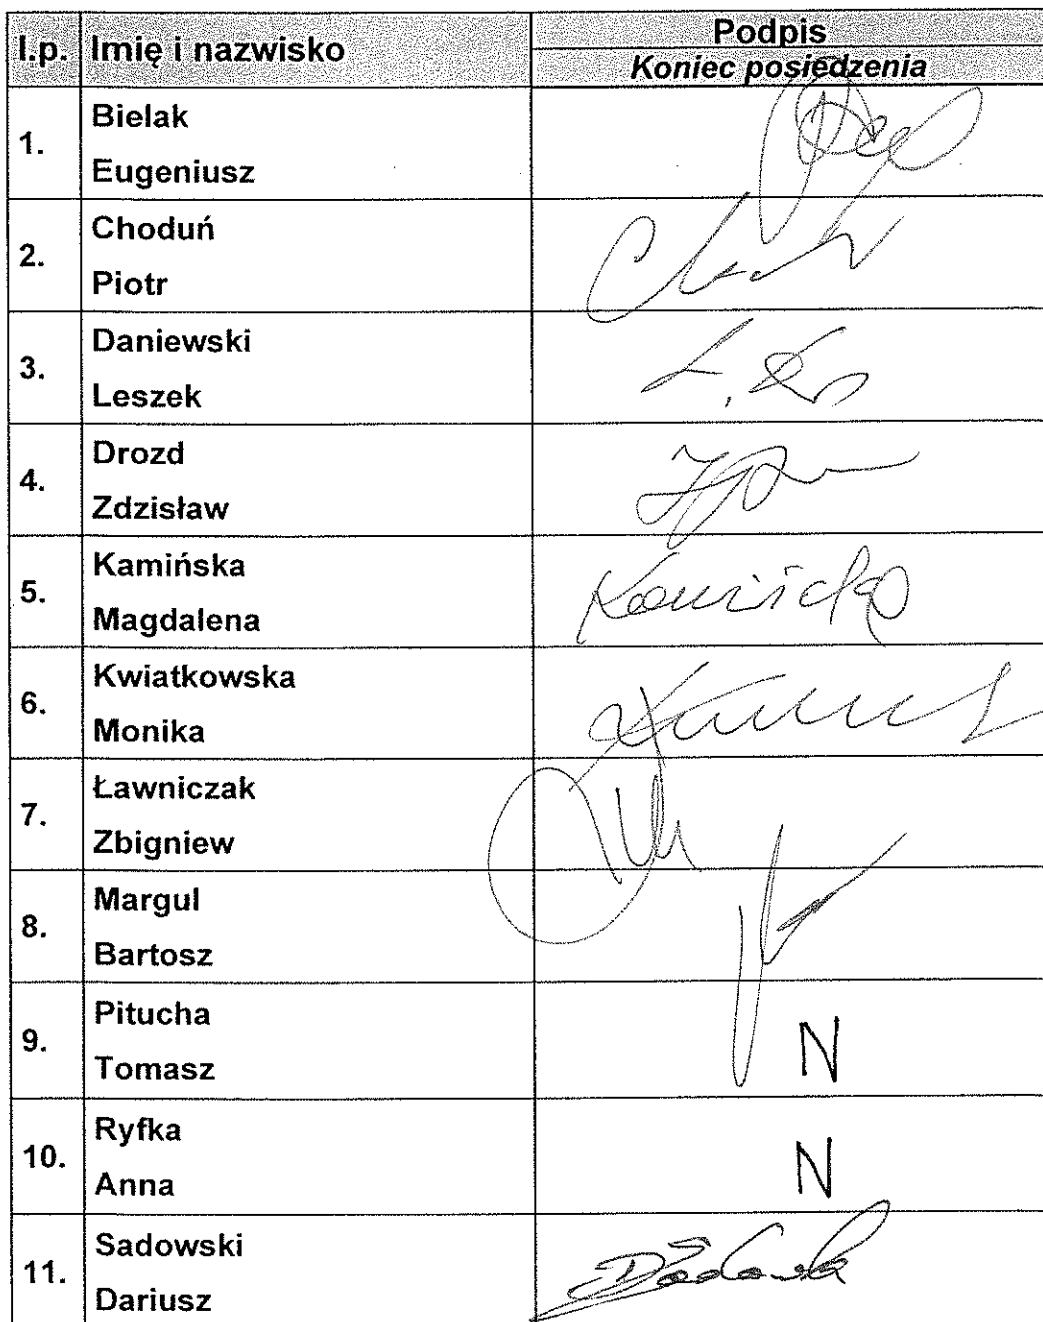 l.p. Imię i nazwisko Podpis
Koniec posiedzenia
1. Bielak
Eugeniusz
2. Choduń
Piotr
3. Daniewski
Leszek
4. Drozd
Zdzisław
5. Kamińska
Magdalena
6. Kwiatkowska
Monika
7. Ławniczak
Zbigniew
8. Margul
Bartosz
9. Pitucha
Tomasz N
10. Ryfka
Anna N
11. Sadowski
Dariusz